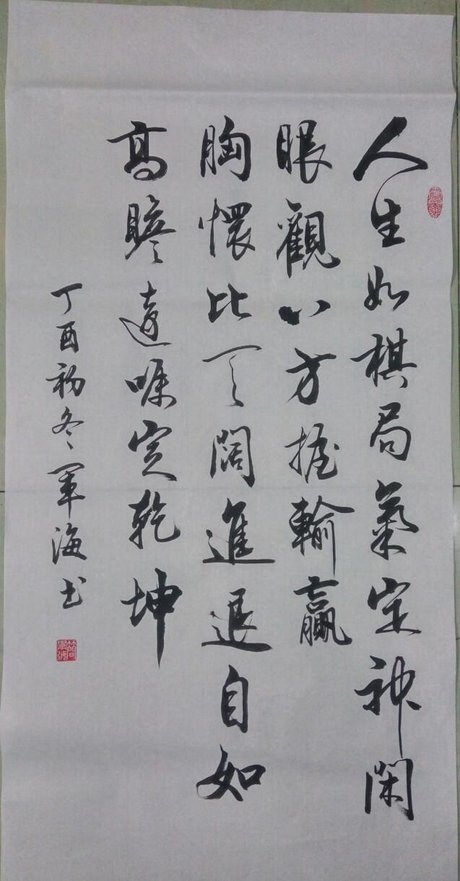 人生如棋局氣定神閑
眼觀八方握輸贏
胸懷比天闊進退自如
高瞻遠矚定乾坤
丁酉初冬軍海书